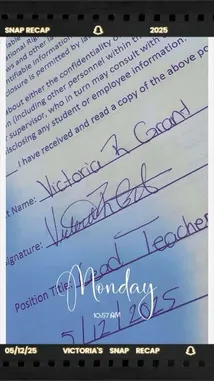 SNAP RECAP 2025
and other
ntifiable information
closure is permitted by la
about either the confidentiality o
n (including other personnel within t
supervisor, who in turn may consult with
disclosing any student or employee information.
I have received and read a copy of the above po
t Name: Victoria R Grant
ignature:
Position Title: Lead Teacher
Monday
10:57 AM
5/12/2025
05/12/25 VICTORIA'S SNAP RECAP